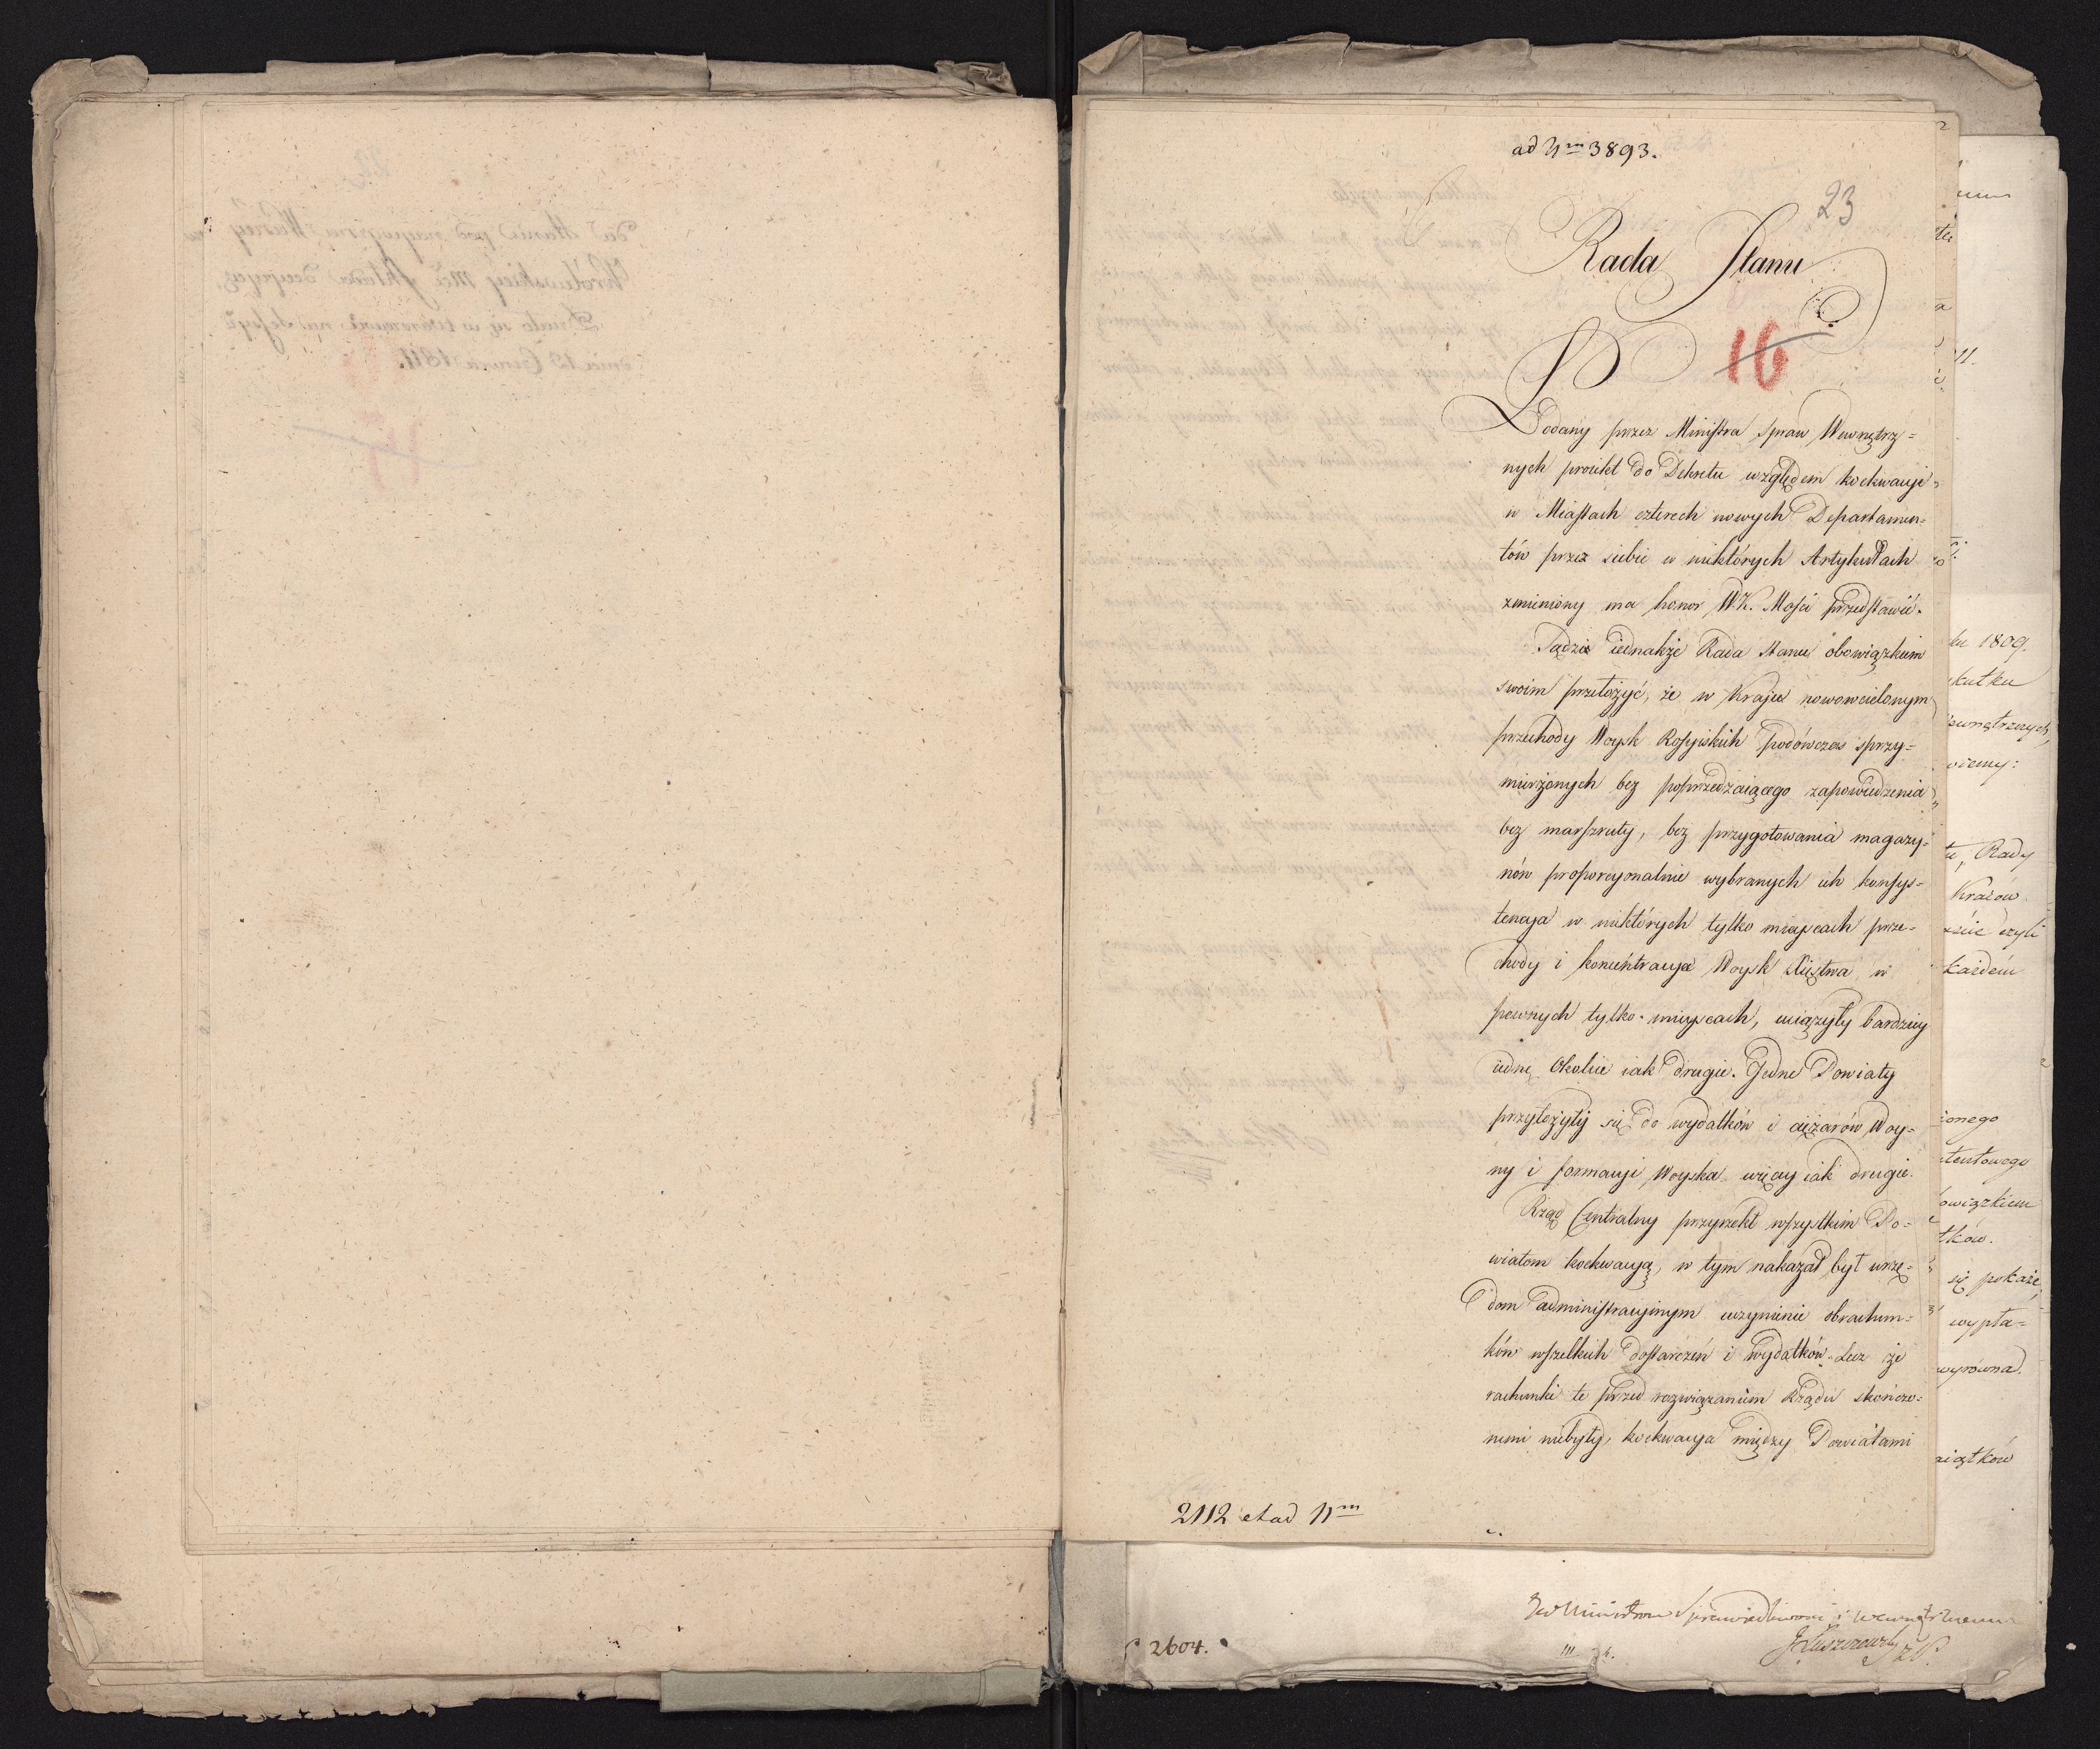 ad Nm 3893.
23
Rada Stanu
16
Podany przez Ministra spraw Wewnętrz=
nych proiekt do Dekretu względem koekwacyi
w Miastach czterech nowych Departamen=
tów przez siebie w niektórych Artykułach
zmieniony ma honor W.K. Mości przedstawić.
Sądzi iednakże Rada Stanu obowiązkiem
swoim przełożyć, że w Kraju nowowcielonym
przechody Woysk Rossyiskich podówczas sprzy=
mierzonych bez poprzedzaiącego zapowiedzenia
bez marszruty, bez przygotowania magazy=
nów proporcyonalnie wybranych ich konsys=
tencya w niektórych tylko mieyscach prze=
chody i koncentracya Woysk Xięstwa w
pewnych tylko mieyscach, uciążyły bardziey
iedne Okolice iak drugie. Jedne Powiaty
przyłożyły się do wydatków i ciężarów Woy=
ny i formacyi Woyska więcey iak drugie.
Rząd Centralny przyrzekł wszystkim Po=
wiatom koekwacyą, w tym nakazał był urzę=
dom administracyinym uczynienie obrachun=
ków wszelkich dostarczeń i wydatków. Lecz że
rachunki te przed rozwiązaniem Rządu skończo=
nemi niebyły, koekwacya między Powiatami
2112 et ad Nm
ku 1809.
skutku
ewnętrznych,
wiemy:
tu, Rady
Kraiów
czyli
każdém
ionego
owiązkiem
tków.
się pokaże
wypła=
wyrówna.
aiątków
2604.